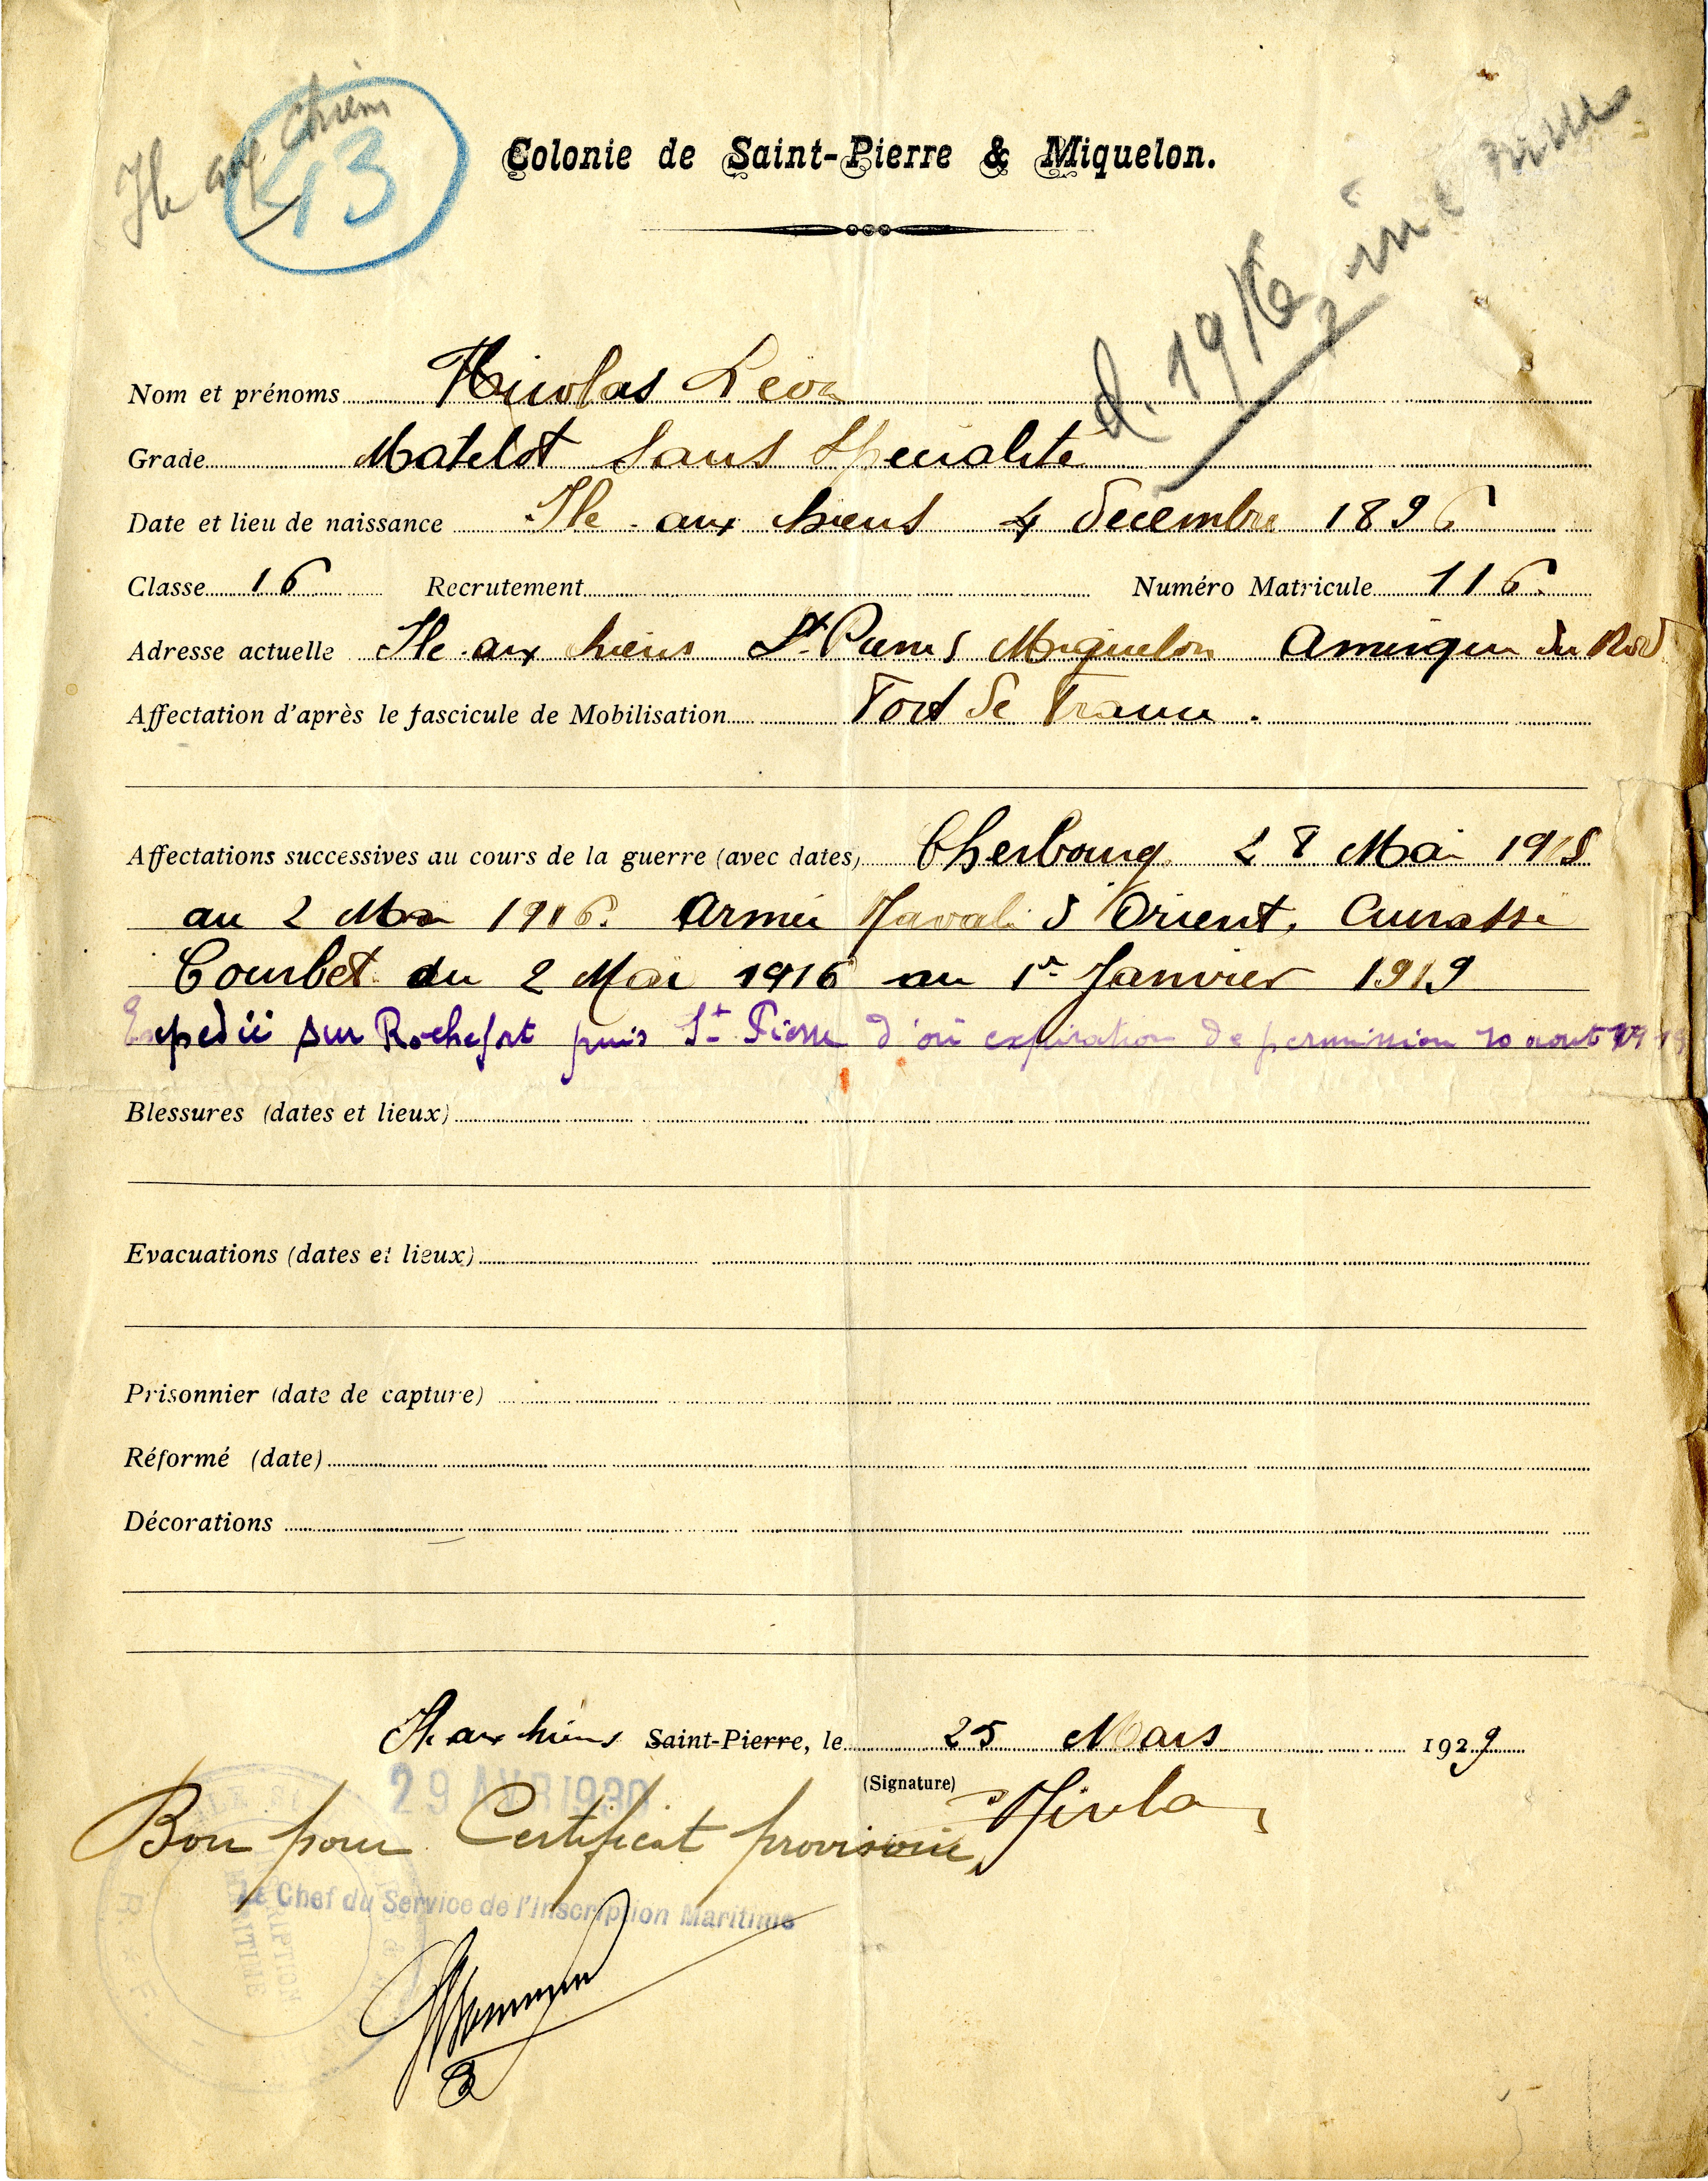 Ile aux Chiens
43
Colonie de Saint-Pierre & Miquelon.
d. 1916
Nom et prénoms Nicolas Léon
Grade Matelot Sans Spécialité
Date et lieu de naissance Ile aux chiens 4 décembre 1896
Classe 16 Recrutement Numéro Matricule 116
Adresse actuelle Ile aux chiens St Pierre Miquelon Amérique du Nord
Affectation d'après le fascicule de Mobilisation Fort de France.
Affectations successives au cours de la guerre (avec dates) Cherbourg 28 Mai 1915
au 2 Mai 1916. Armée Navale d'Orient, Cuirassé
Courbet du 2 Mai 1916 au 1er Janvier 1919
Expédié sur Rochefort puis St Pierre d'où expiration de permission 20 août 1919
Blessures (dates et lieux)
Evacuations (dates et lieux)
Prisonnier (date de capture)
Réformé (date)
Décorations
Ile aux chiens Saint-Pierre, le 25 Mars 1929
29 AVR 1930
(Signature) Nicolas
Bon pour Certificat provisoire,
Le Chef du Service de l'Inscription Maritime
INSCRIPTION
MARITIME